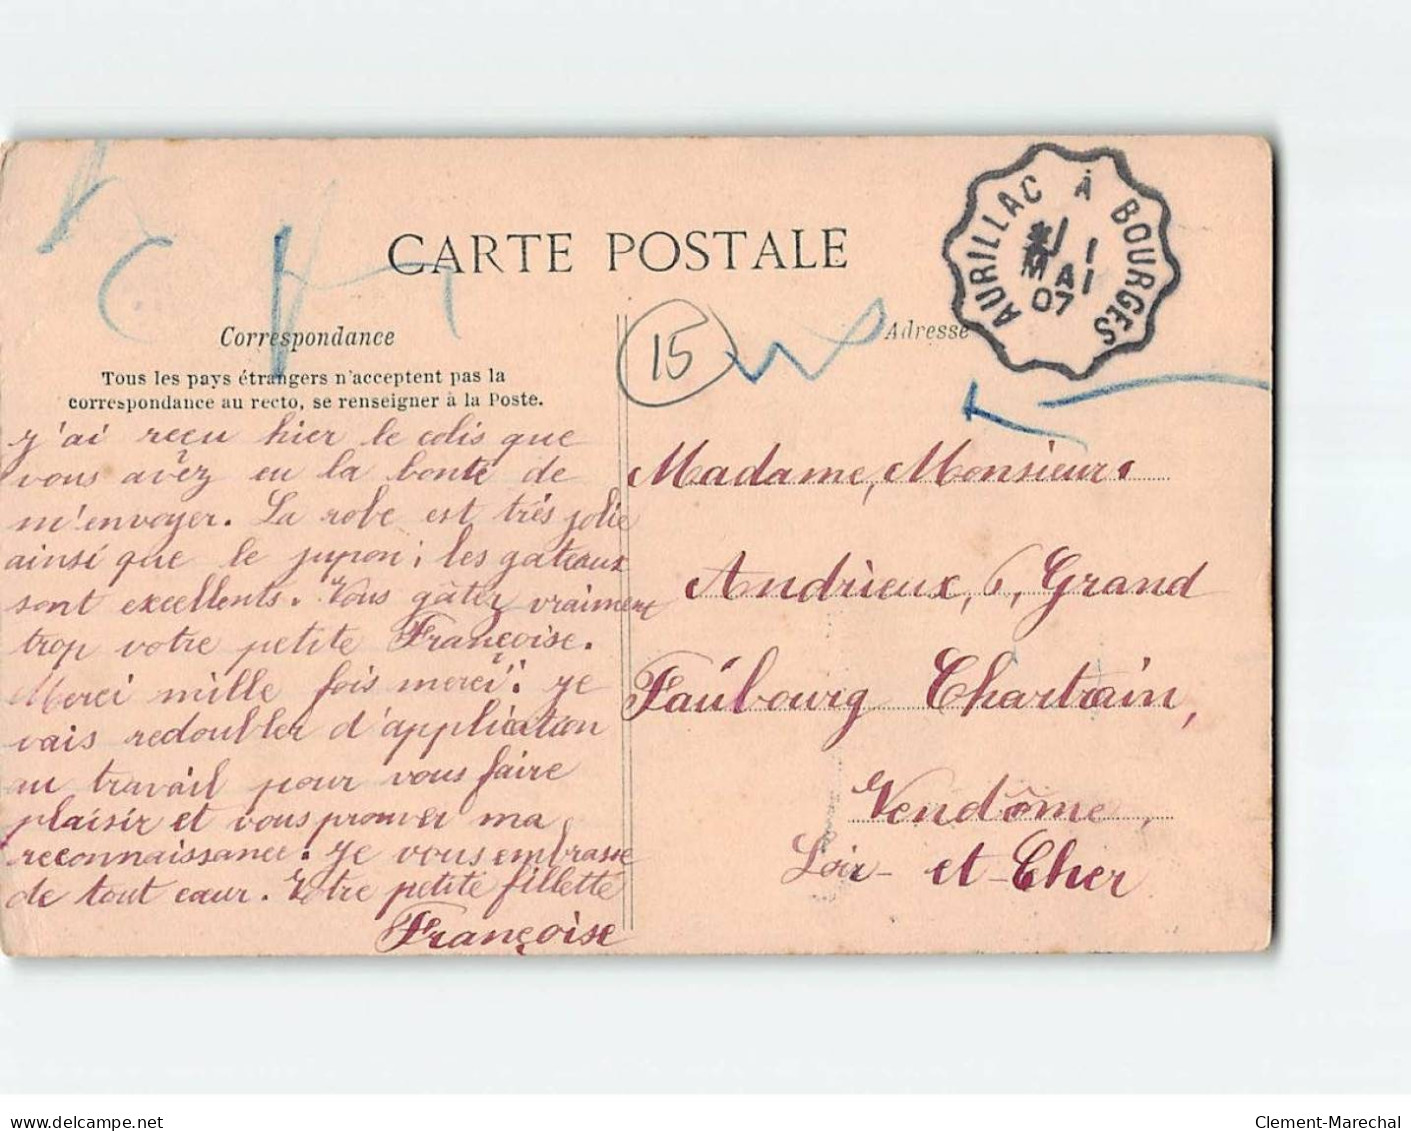 CARTE POSTALE
AURILLAC À BOURGES
1
MAI
07
Correspondance
15
Adresse
Tous les pays étrangers n'acceptent pas la
correspondance au recto, se renseigner à la Poste.
J'ai reçu hier le colis que
vous avez eu la bonté de
m'envoyer. La robe est très jolie
ainsi que le jupon; les gâteaux
sont excellents. Vous gâtez vraiment
trop votre petite Françoise.
Merci mille fois merci. Je
vais redoubler d'application
au travail pour vous faire
plaisir et vous prouver ma
reconnaissance. Je vous embrasse
de tout cœur. Votre petite fillette
Françoise
Madame, Monsieur
Andrieux, 6, Grand
Faubourg Chartrain,
Vendôme,
Loir-et-Cher
delcampe.net
Clement-Marechal